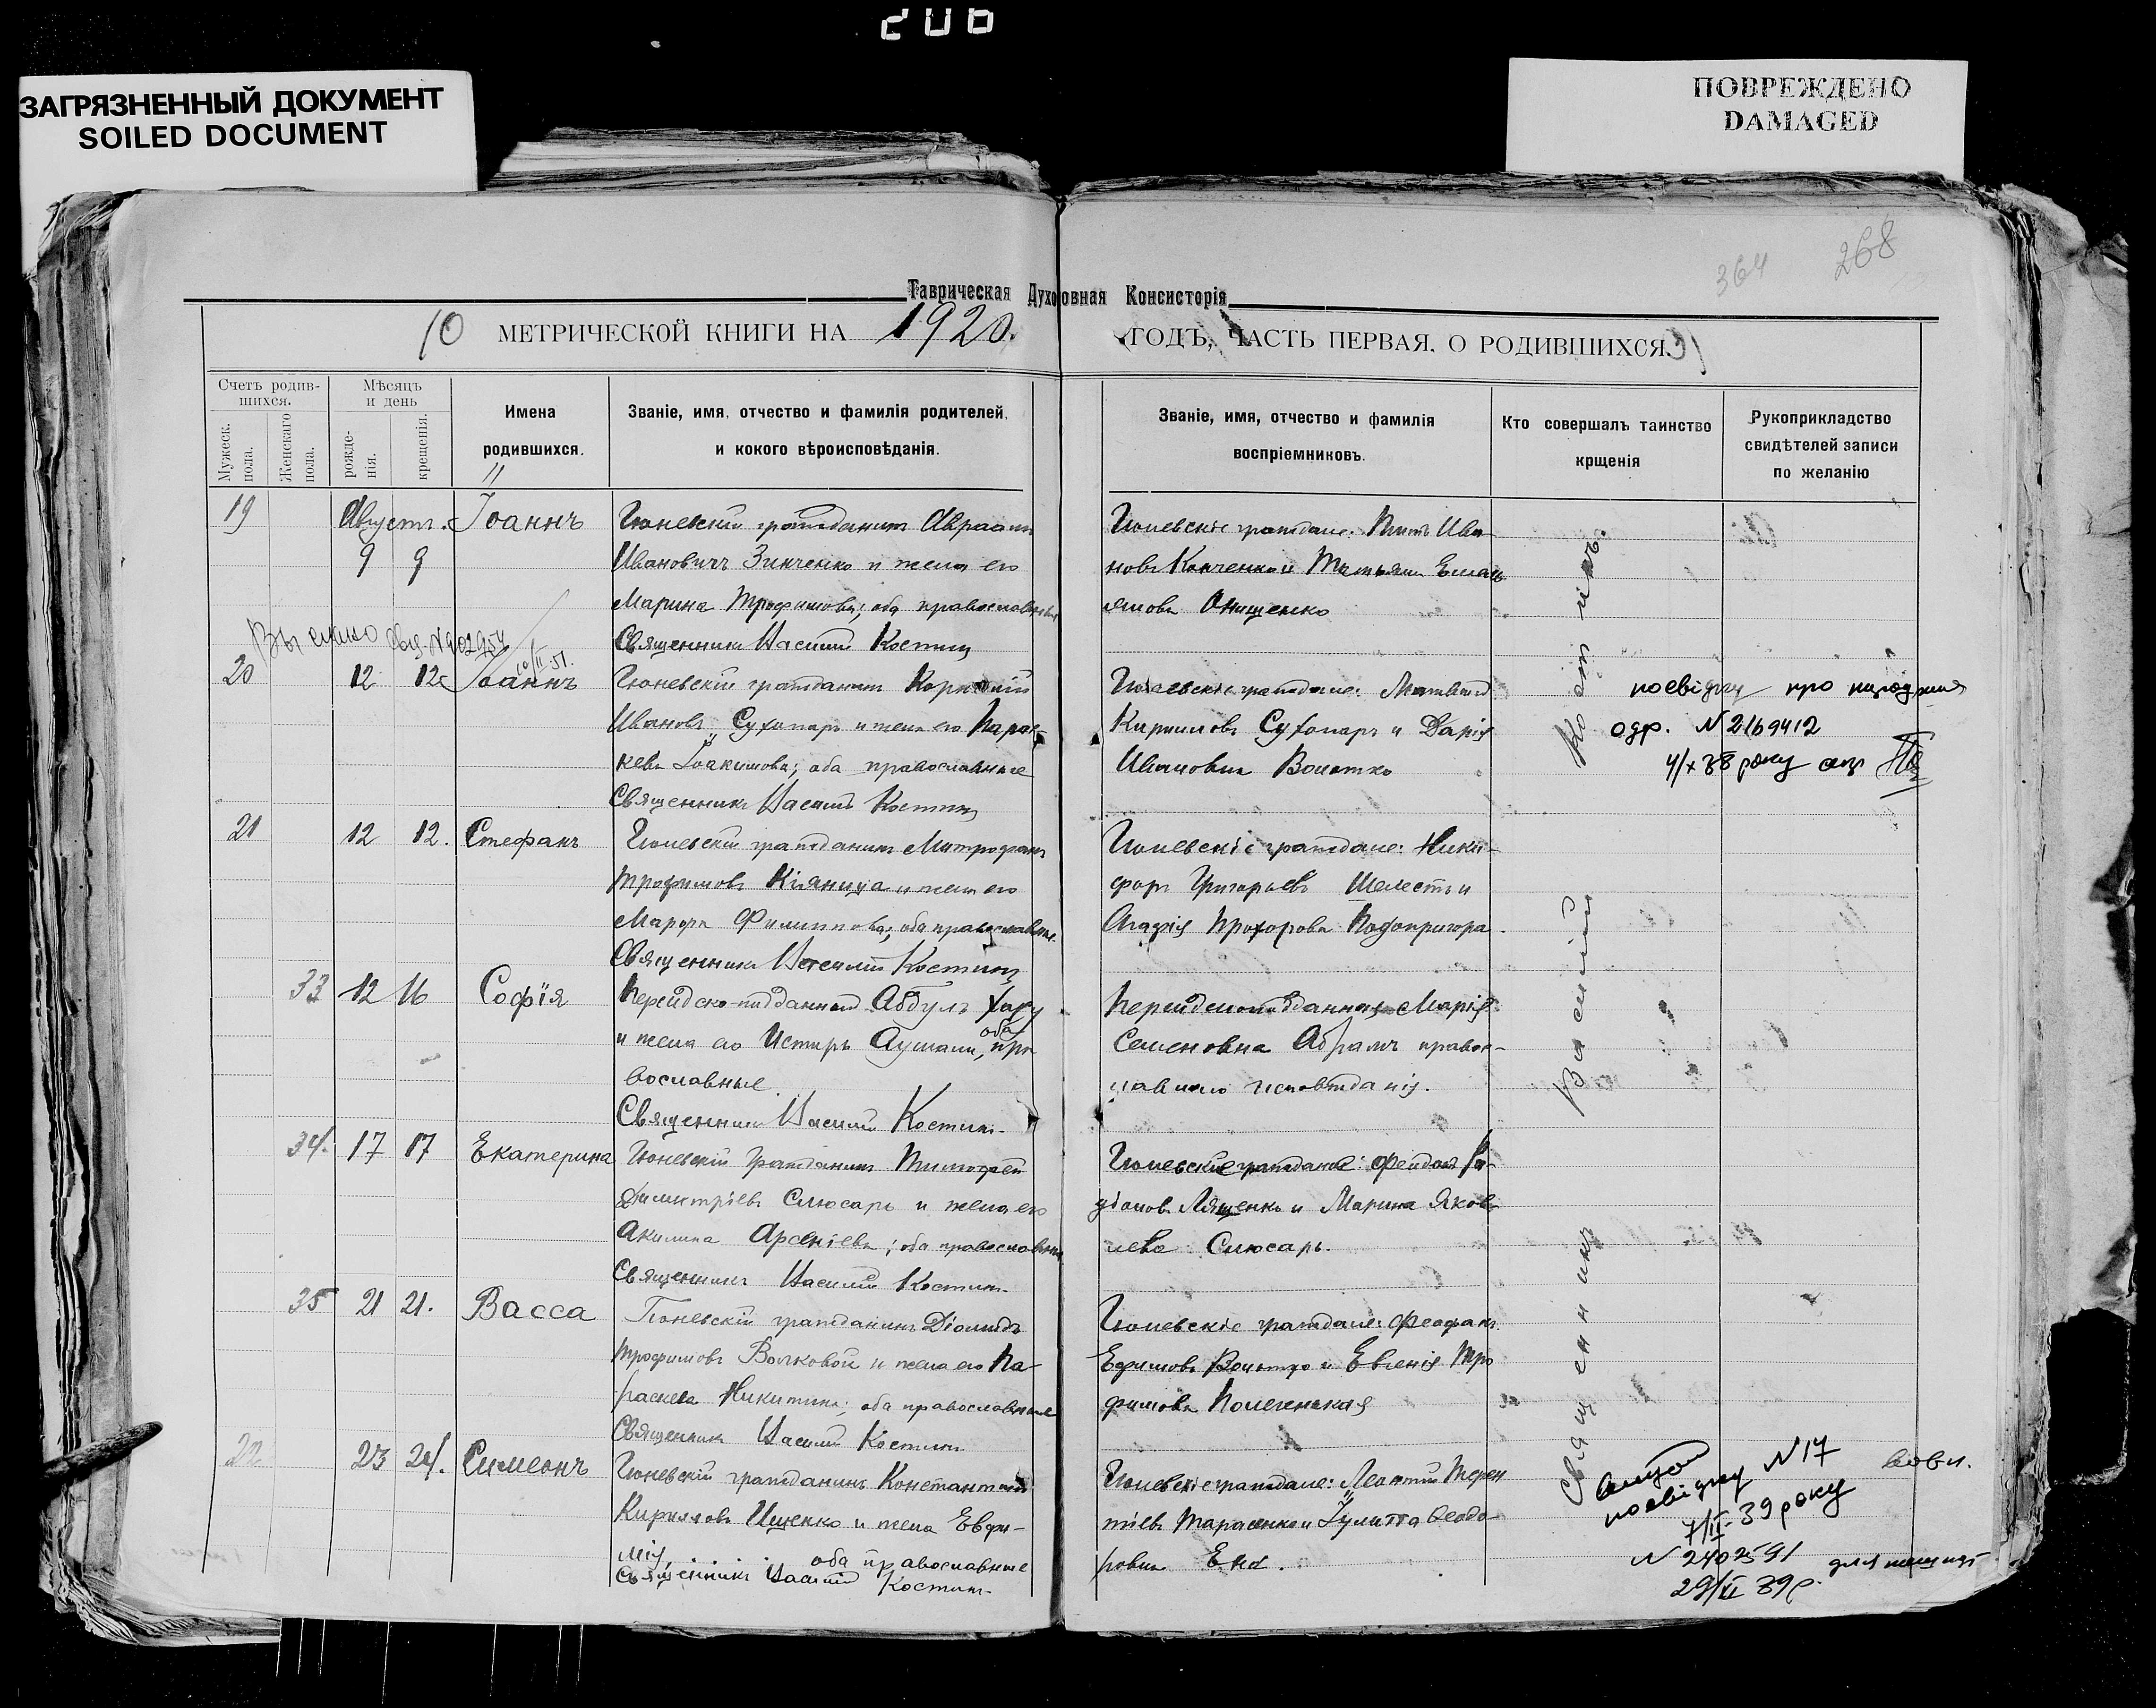 206
ЗАГРЯЗНЕННЫЙ ДОКУМЕНТ
SOILED DOCUMENT
ПОВРЕЖДЕНО
DAMAGED
364 268
Таврическая Духовная Консисторія
10 МЕТРИЧЕСКОЙ КНИГИ НА 1920. ГОДЪ, ЧАСТЬ ПЕРВАЯ, О РОДИВШИХСЯ.
Счетъ родив-
шихся.
Мужеск.
пола.
Женскаго
пола.
Мѣсяцъ
и день
рожде-
нія.
крещенія.
Имена
родившихся.
Званіе, имя, отчество и фамилія родителей,
и кокого вѣроисповѣданія.
Званіе, имя, отчество и фамилія
воспріемниковъ.
Кто совершалъ таинство
крщенія
Рукоприкладство
свидѣтелей записи
по желанію
19 Августъ. Іоаннъ
9 9
Гюневскій гражданинъ Авраамъ
Ивановичъ Зинченко и жена его
Марина Трофимова; оба православные
Священникъ Василій Костинъ
Гюневскіе граждане: Ива-
новъ и Татьяна Емель
янова Онищенко
20 12 12 Іоаннъ
Гюневскій гражданинъ Корнилій
Ивановъ Сухопаръ и жена его Парас-
кева Іоакимова; оба православные
Священникъ Василій Костинъ
Гюневскіе граждане:
Кирилловъ Сухопаръ и Дарія
Ивановна
посвідку про народження
одр. N 2169412
4/X 38 року
21 12 12. Стефанъ
Гюневскій гражданинъ Митрофанъ
Трофимовъ Кіяница и жена его
Марфа Филиппова; оба православные.
Священникъ Василій Костинъ
Гюневскіе граждане: Ники-
форъ Григорьевъ Шелестъ и
Агафія Прохорова Подопригора
33 12 16 Софія
Персидско-подданный Абдулъ
и жена его Истиръ оба пра
вославные
Священникъ Василій Костинъ.
Персидскоподданная Марія
Семеновна Абрамъ правос-
лавнаго исповѣданія.
34. 17 17 Екатерина
Гюневскій гражданинъ Тимофей
Димитріевъ Слюсарь и жена его
Акилина Арсеніева; оба православные
Священникъ Василій Костинъ.
Гюневскіе граждане:
Лященко и Марина Яков
лева Слюсарь.
35 21 21. Васса
Гюневскій гражданинъ Діомидъ
Трофимовъ Волковой и жена его Па-
раскева Никитина; оба православные
Священникъ Василій Костинъ
Гюневскіе граждане: Феофанъ
Ефимовъ и Евгенія Тро
фимова
22 23 24. Симеонъ
Гюневскій гражданинъ Константинъ
Кирилловъ Ищенко и жена Евфи-
мія, оба православные
Священникъ Василій Костинъ.
Гюневскіе граждане: Леонтій Терен
тіевъ Тарасенко и Іулитта Ѳеодо-
ровна
Священникъ Василій Костинъ.
посвідку N 17
7/II-39 року
N 2402591
29/II 39р.